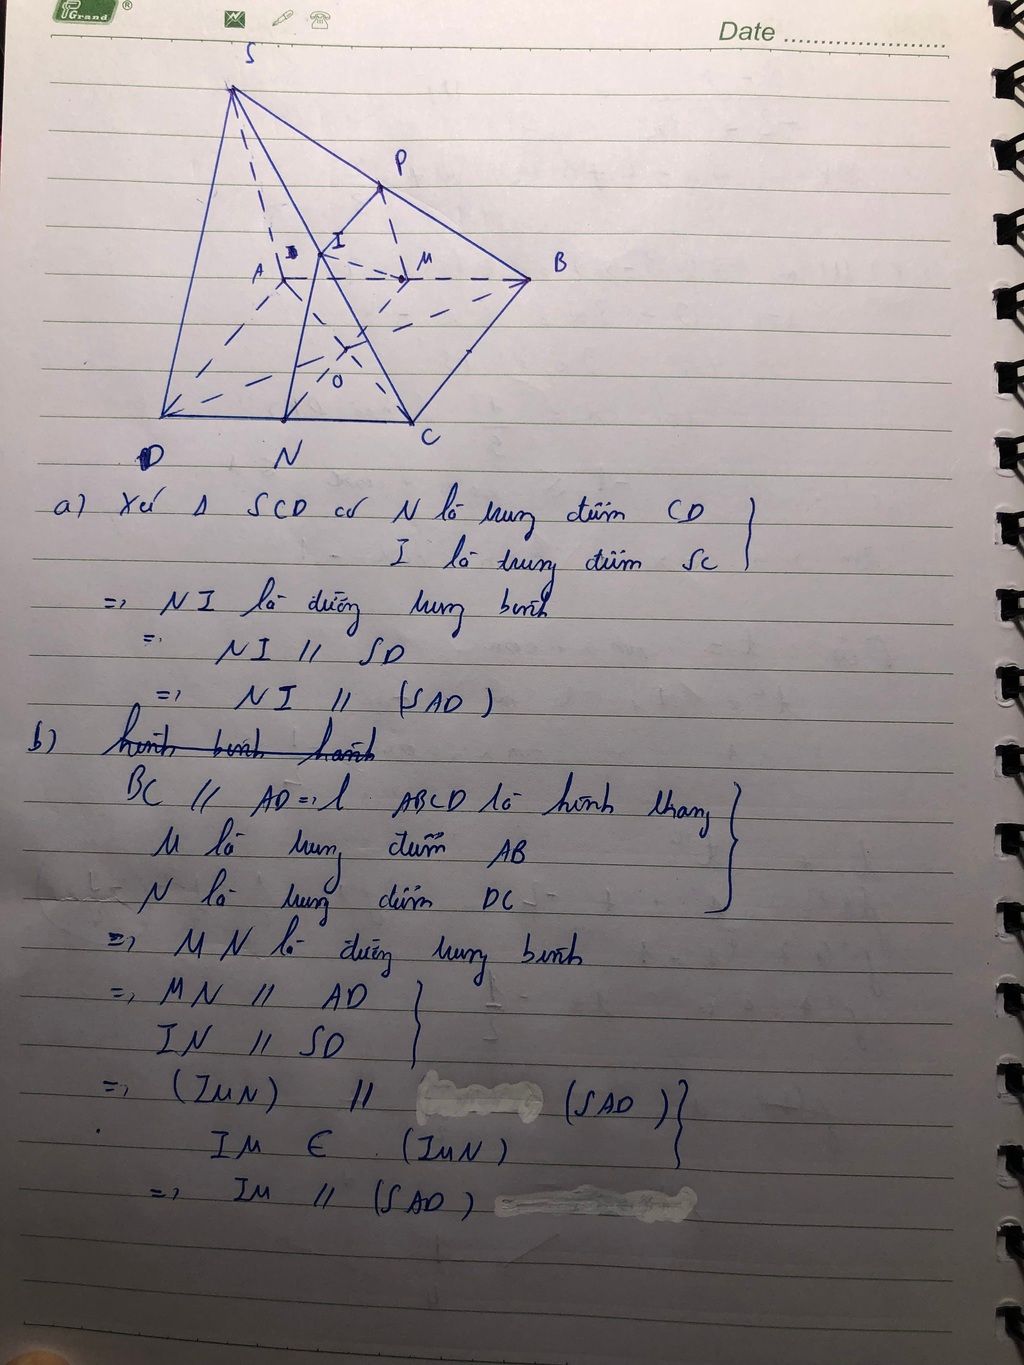 Grand ®
Date
S
P
A I M B
O
D N C
a) Xét Δ SCD có N là trung điểm CD
I là trung điểm SC
=> NI là đường trung bình
=> NI // SD
=> NI // (SAD)
b) hình bình hành
BC // AD => ABCD là hình thang
M là trung điểm AB
N là trung điểm DC
=> MN là đường trung bình
=> MN // AD
IN // SD
=> (IMN) // (SAD)
IM ∈ (IMN)
=> IM // (SAD)